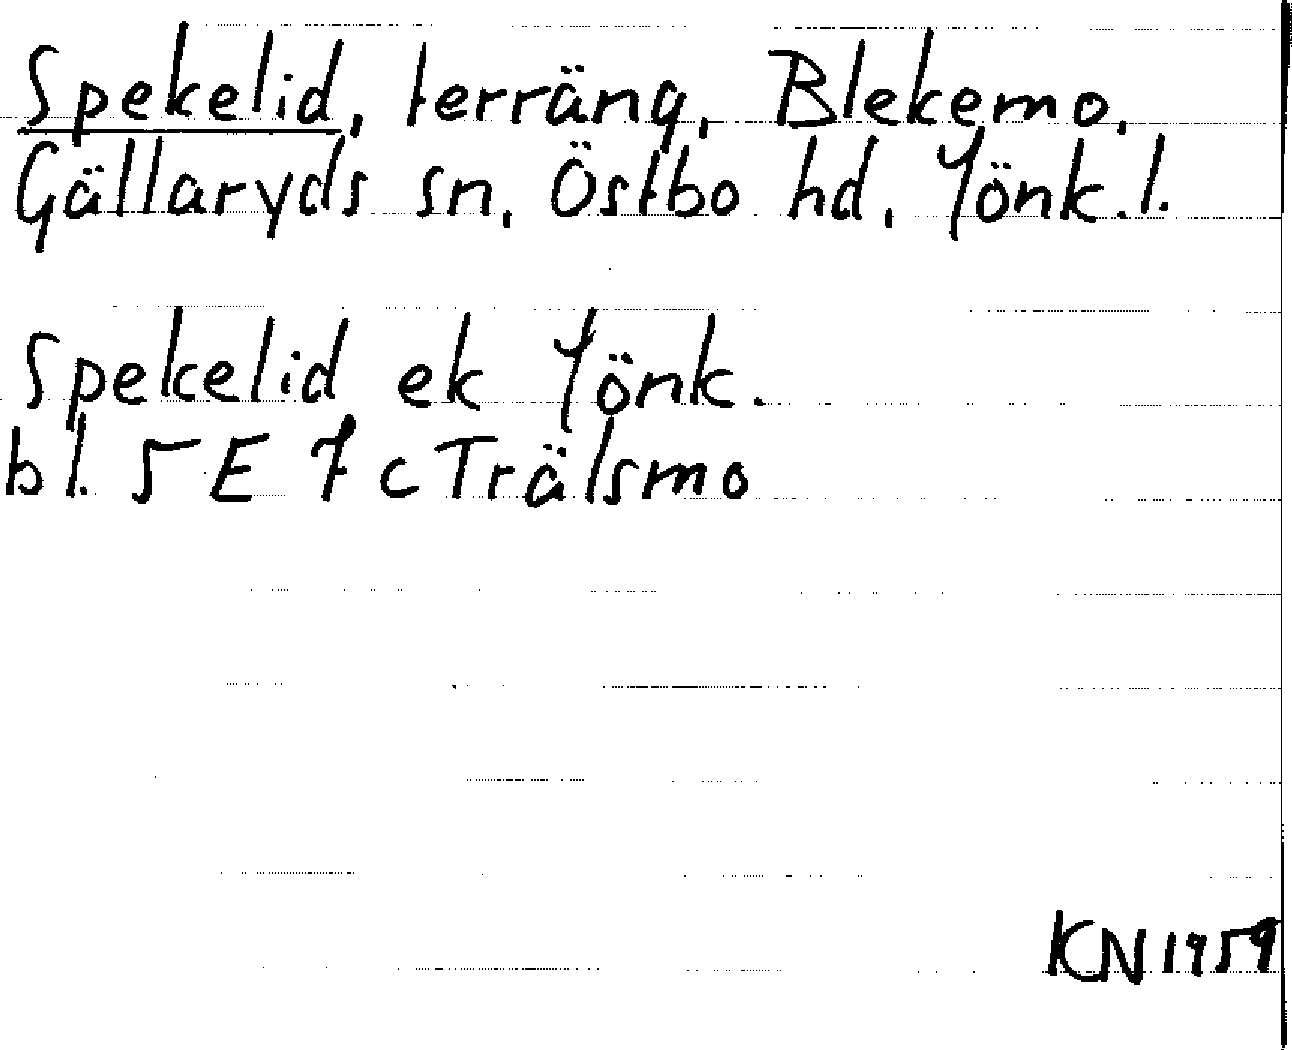 Spekelid, terräng, Blekemo,
Gällaryds sn, Östbo hd, Jönk.l.
Spekelid ek Jönk.
bl. 5E 7c Trälsmo
KN 1959